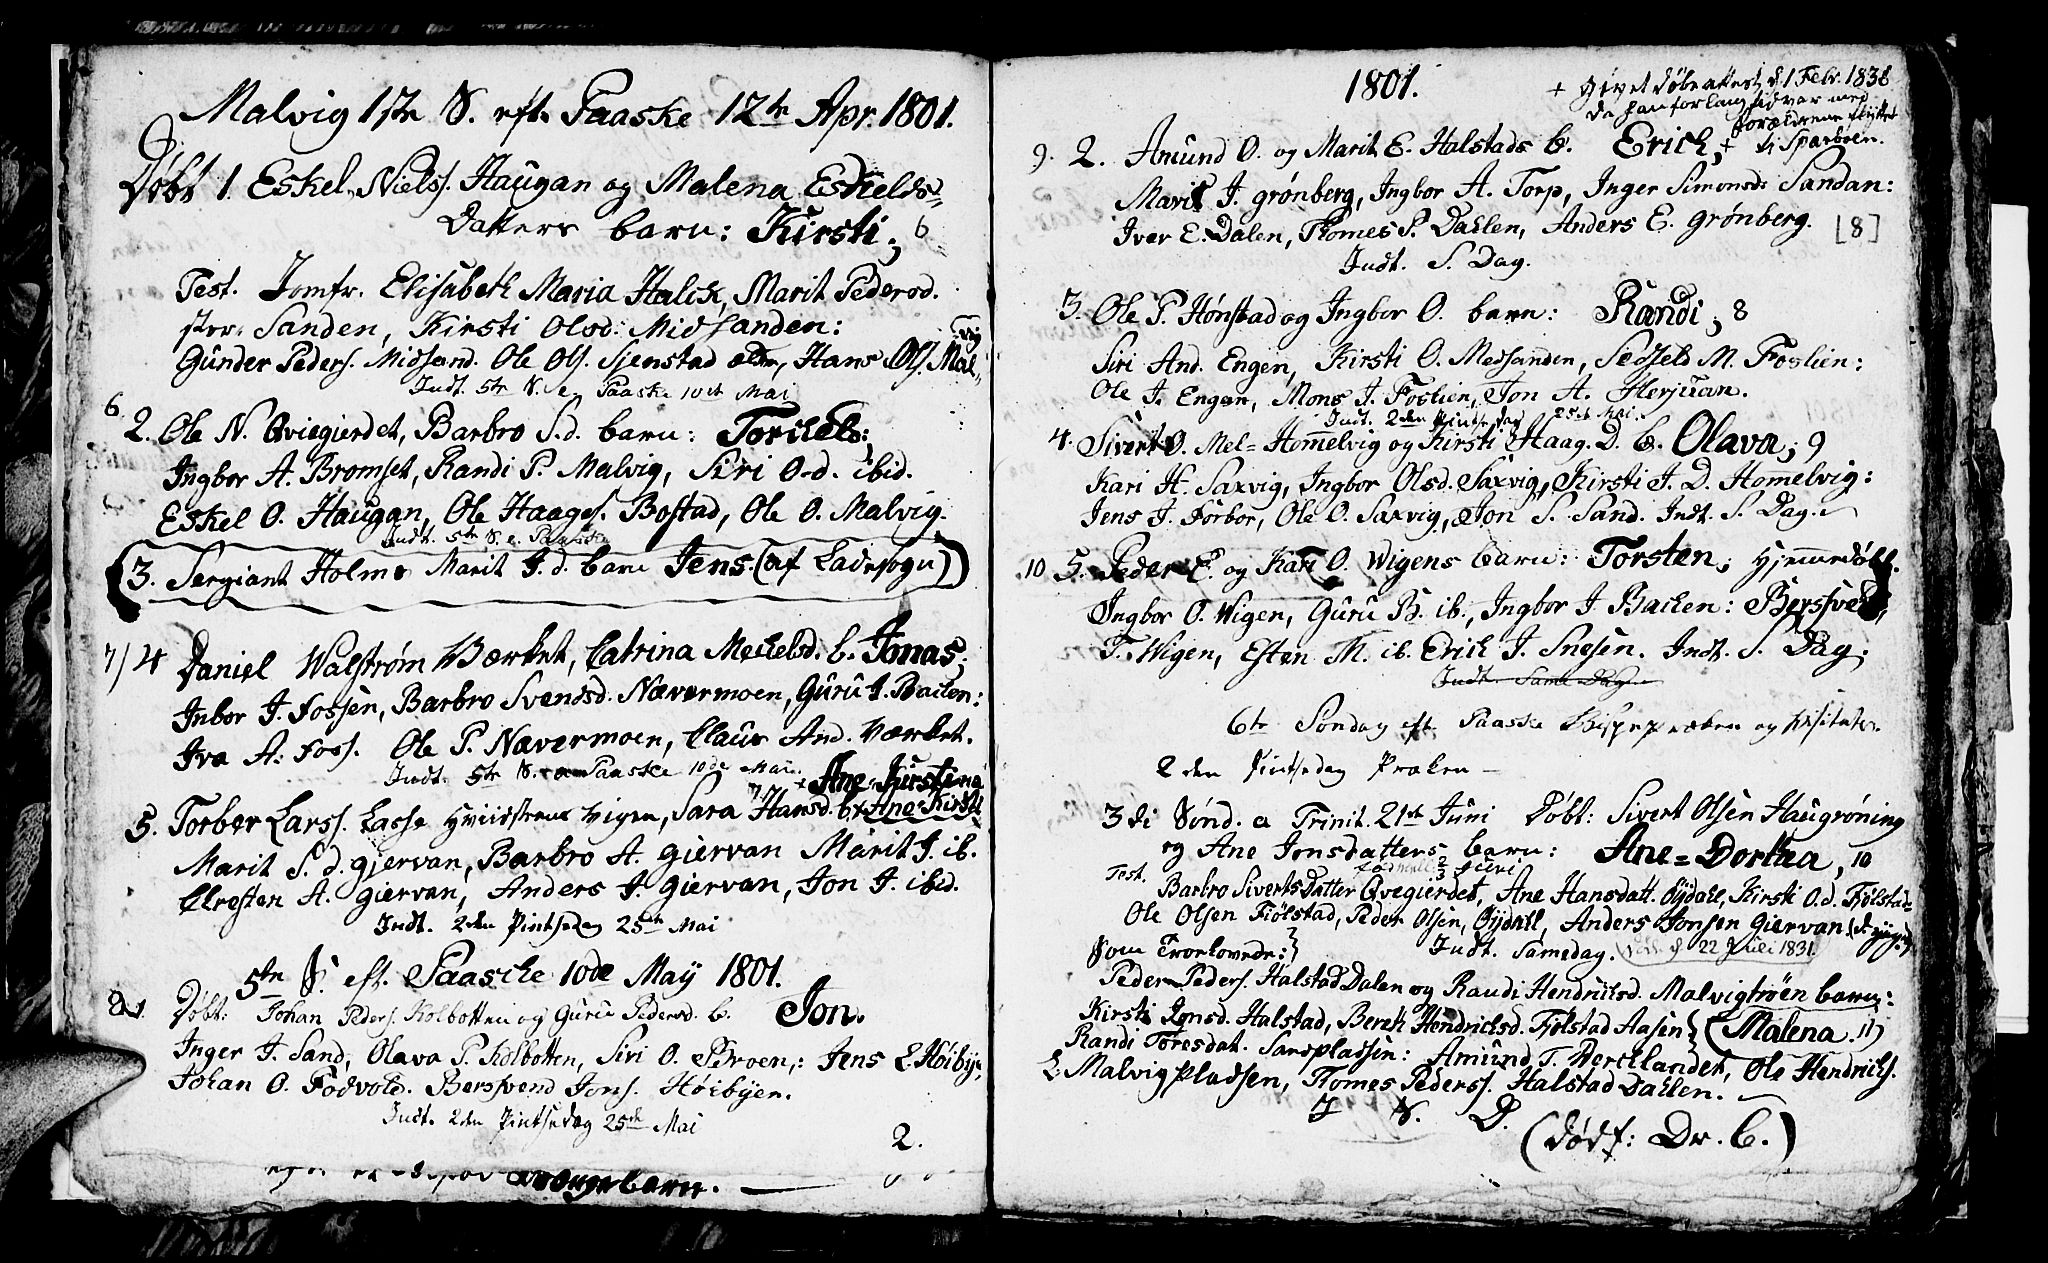 Malvig 1ste S. eft. Paaske 12te Apr. 1801.
Døbt 1. Eskel Nielss. Haugan og Malena Eskelds=
Datters barn: Kirsti; 6
Test. Jomfr. Elisabeth Maria Halck, Marit Pedersd.
Sanden, Kirsti Olsd: Midsanden:
Gunder Peders. Midsand. Ole Ols. Sjenstad ældr, Hans Ols. Mal=
vig
Indt. 5te S. e. Paaske 10de Mai
6. 2. Ole N. Qviegierdet, Barbro S.d. barn: Torkel;
Ingbor A. Bromset, Randi P. Malvig, Siri O.d. ibid.
Eskel O. Haugan, Ole Haages. Bostad, Ole O. Malvig.
Indt. 5te S. e. Paaske
(3. Sergiant Holms Marit J.d. barn Jens. (af Ladesogn))
7/4 Daniel Walstrøm Værket, Catrina Meckelsd. b. Jonas;
Inbor J. Fossen, Barbro Svendsd. Nævermoen, Guru J. Backen:
Iva A. Foss. Ole P. Nævermoen, Claus And. Værket.
Indt. 5te S. e Paaske 10de Mai.
+ Ane Kirstina
5. Torber Larss. Lasse Hviidstens Vigen, Sara Hansd. b. + Ane Kirsti
Marit S.d. Gjervan, Barbro A. Giervan Marit J. ib.
Chresten A. Giervan, Anders J. Giervan, Jon J. ibid.
Indt. 2den Pintsedag 25de Mai
5te S. eft. Paaske 10de May 1801.
8. 1. Døbt: Johan Peders. Kolbotten og Guru Pedersd. b. Jon.
Inger J. Sand, Olava P. Kolbotten, Siri O. Broen,: Jens E. Höibye,
Johan O. Fodvold. Bersvend Jons. Höibyen.
Indt. 2den Pintsedag 25de Mai
2.
barn.
1801.
+ givet døbeattest d. 1 Febr. 1838
da han for lang tid var med
forældrene flyttet
til Sparboen.
9. 2. Amund O. og Marit E. Halstads b. Erick, +
Marit J. Grønberg, Ingbor A. Torp, Inger Simonsd: Sandan:
Iver E. Dalen, Thomes P. Dahlen, Anders E. Grønberg. [8]
Indt. S. Dag.
3. Ole P. Hønstad og Ingbor O. barn: Randi; 8
Siri And. Engen, Kirsti O. Medsanden, Sedsels M. Foslien:
Ole J. Engan, Mons J. Foslien, Jon A. Herjuan.
Indt. 2den Pintsedag 25de Mai.
4. Sivert O. Mel= Hommelvig og Kirsti Haag. D. b. Olava; 9
Kari H. Saxvig, Ingbor Olsd. Saxvig, Kirsti J. D. Hommelvig:
Jens J. Forbor, Ole O. Saxvig, Jon S. Sand. Indt. S. Dag.
10 5. Peder E. og Kari O. Wigens barn: Torsten; Hjemmedøbt.
Ingbor O. Wigen, Guru B. ib., Ingbor J. Backen: Bersvend
T. Wigen, Esten M. ib. Erich J. Snesen. Indt. S. Dag;
Indt. Same Dag.
6te Søndag eft. Paaske Bispeprøben og Visitats.
2den Pintsedag Præken
3die Sønd. e Trinit. 21de Juni Døbt: Sivert Olsen Haugrøning
og Ane Jonsdatters barn: Ane=Dortea, 10
Test. Barbro Siverts Datter Qvegierdet, Ane Hansdatt. Öydahl, Kirsti O.d. Fjølstad=
Ole Olsen Fiölstad, Peder Olsen, Öydahl, Anders Jonsen Giervan
Som Troelovede:} Indt. Samedag. 22 Juli 1831.
Peder Peders. Halstad Dalen og Randi Hendricksd. Malvigtrøen barn:
Kirsti Jonsd. Halstad, Bereth Hendrichsd. Fjølstad Aasen} (Malena. 11)
Randi Toresdat. Sandpladsen: Amund T. Bercklandet, Ole Hendrichs.
Malvigpladsen, Thomes Peders. Halstad Dahlen.
J S. D.
(Død f: Dr. C.)